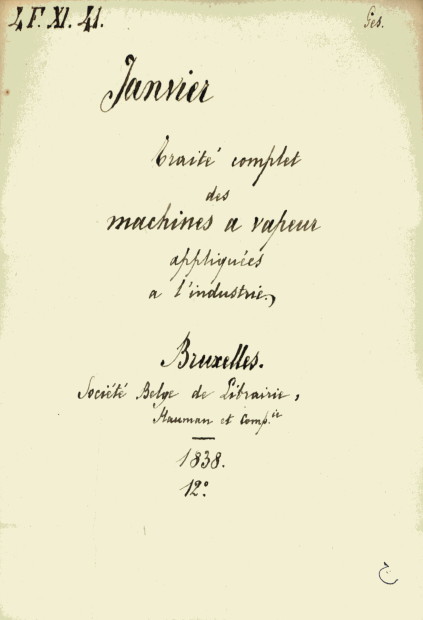 4 F. XI. 41.
Ges.
Janvier
Traité complet
des
machines a vapeur
appliquées
a l'industrie,
Bruxelles.
Société Belge de Librairie,
Hauman et Comp.ie
1838.
12°.